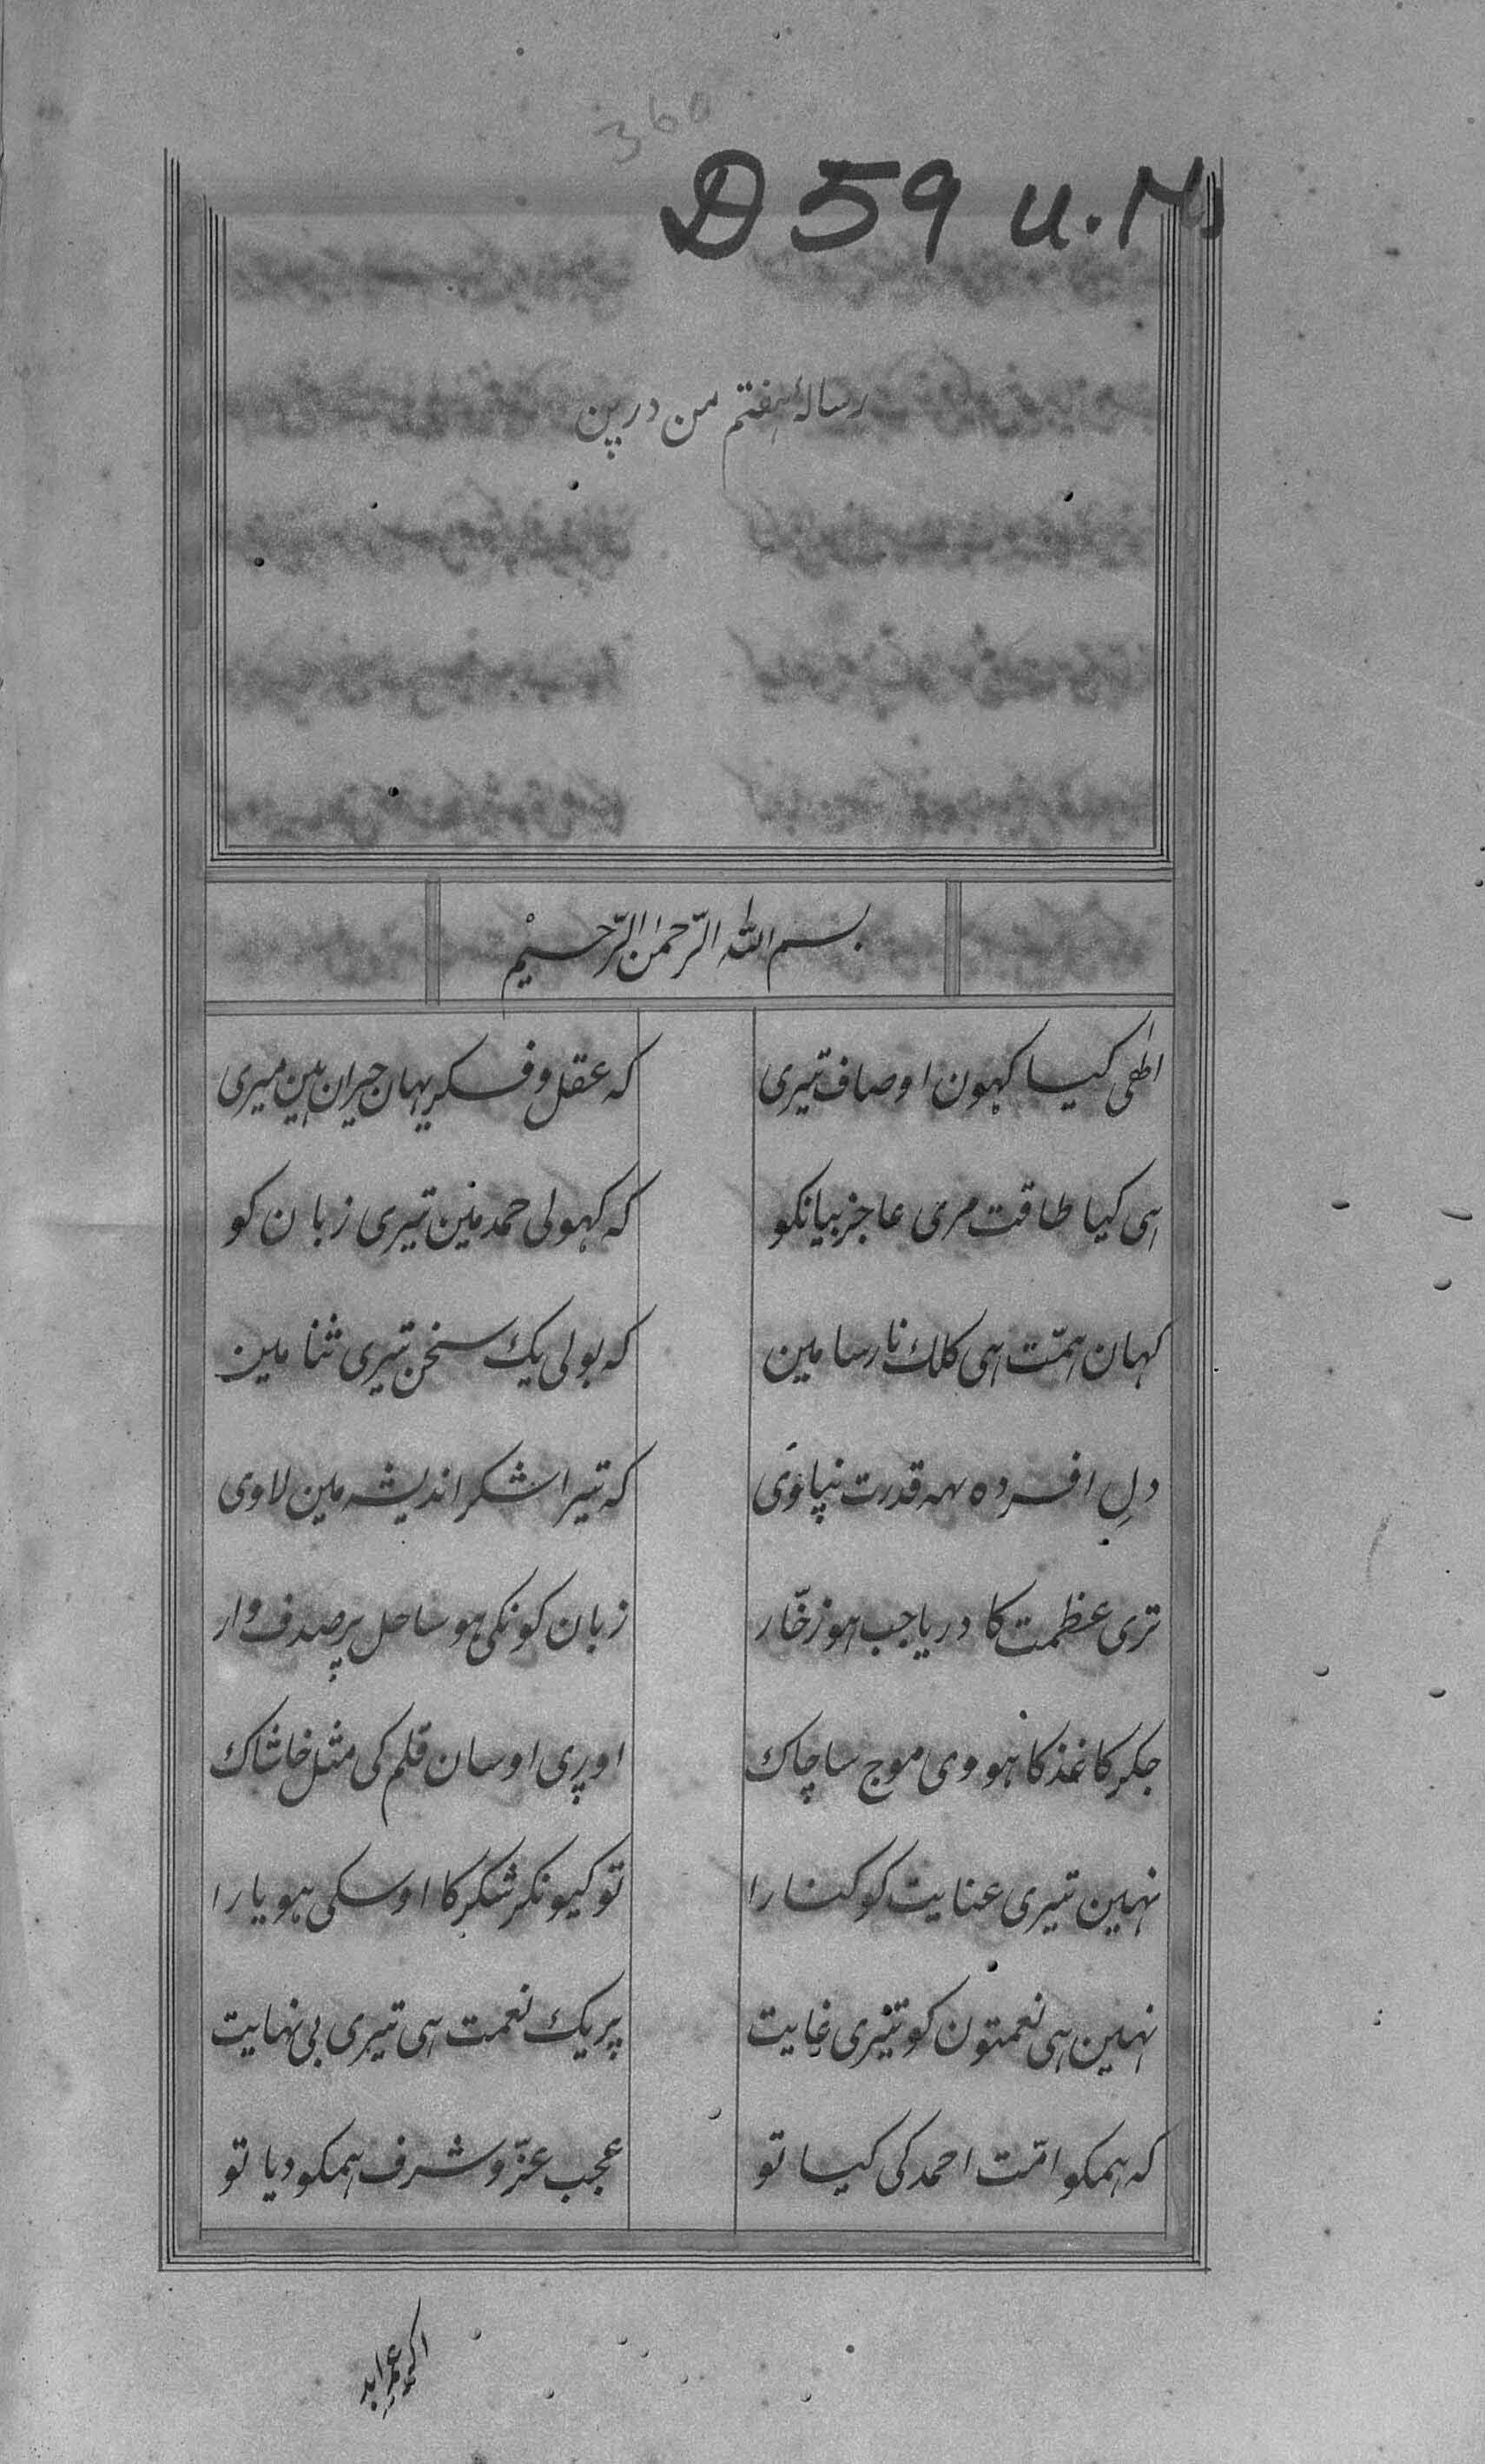 360
D 59 U. Ms
رسالۂ ہفتم من درپن
بسم اللہ الرّحمٰن الرّحیْم
الٰھی کیا کہون اوصاف تیری
که عقل و فکر یہان حیران ہین میری
ہی کیا طاقت مری عاجز بیانکو
که کہولی حمد مین تیری زبان کو
کہان ہمّت ہی کلک نارسا مین
که بولی یک سخن تیری ثنا مین
دلِ افسردہ یہه قدرت نپاوَی
که تیرا شکر اندیشه مین لاوی
تری عظمت کا دریا جب ہو زخّار
زبان کونکی ہو ساحل پر صدف وار
جکر کاغذ کا ہووی موج سا چاک
اوپری اوسان قلم کی مثل خاشاک
نہین تیری عنایت کو کنارا
تو کیونکر شکر کا اوسکی ہو یارا
نہین ہی نعمتون کو تیری غایت
پر یک نعمت ہی تیری بی نہایت
که ہمکو امّت احمد کی کیا تو
عجب عزّ و شرف ہمکو دیا تو
اکر عمر ابد